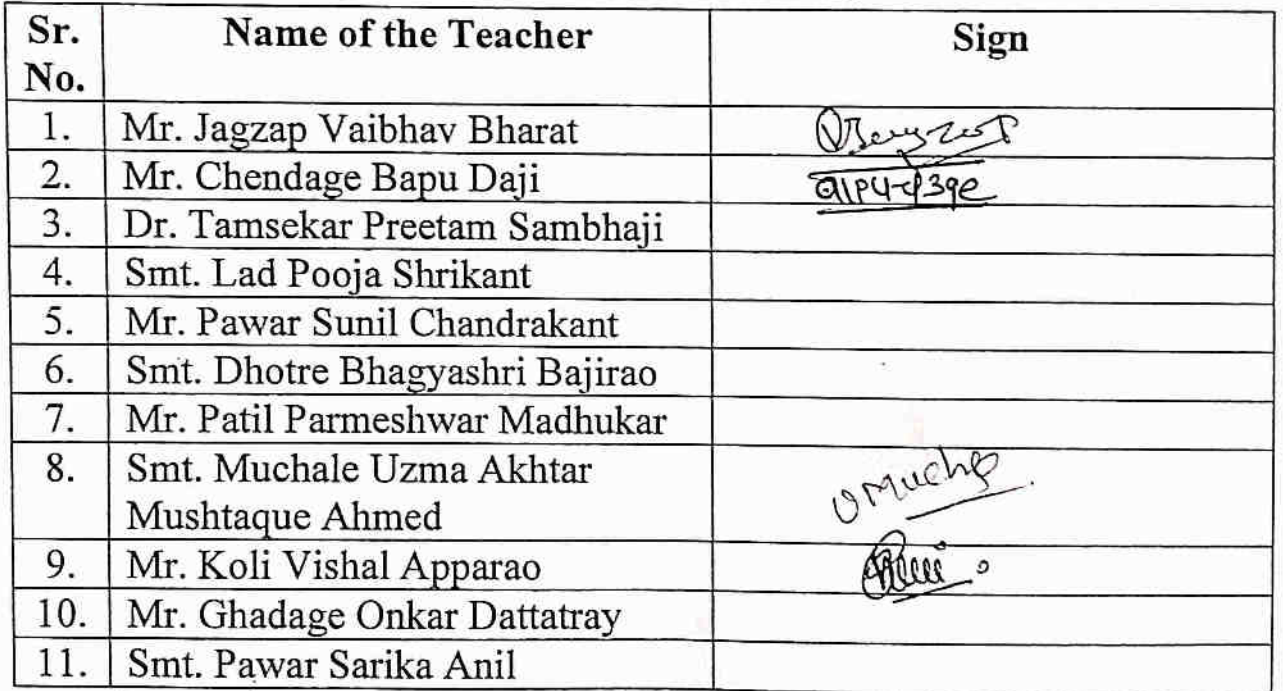 Sr. No. Name of the Teacher Sign
1. Mr. Jagzap Vaibhav Bharat
2. Mr. Chendage Bapu Daji
3. Dr. Tamsekar Preetam Sambhaji
4. Smt. Lad Pooja Shrikant
5. Mr. Pawar Sunil Chandrakant
6. Smt. Dhotre Bhagyashri Bajirao
7. Mr. Patil Parmeshwar Madhukar
8. Smt. Muchale Uzma Akhtar
Mushtaque Ahmed
9. Mr. Koli Vishal Apparao
10. Mr. Ghadage Onkar Dattatray
11. Smt. Pawar Sarika Anil